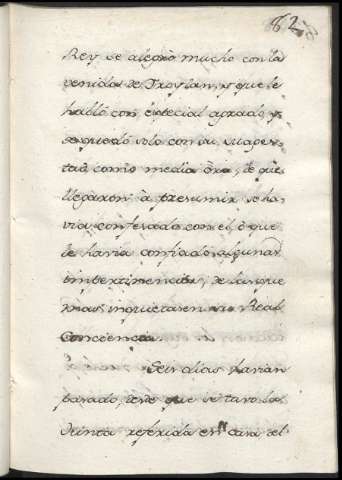 82
Rey se alegrò mucho con la
venida de Froylan, y que le
hablò con especial agrado, y
se quedó solo con su Magest-
tad como media òra, de que
llegaron à presumir se ha-
via confesado con el, ò que
le havia confiado algunas
impertinencias, de las que
mas inquietaren su Real
Conciencia.
Seis dias havian
pasado, desde que se tuvo la
Junta referida en casa del